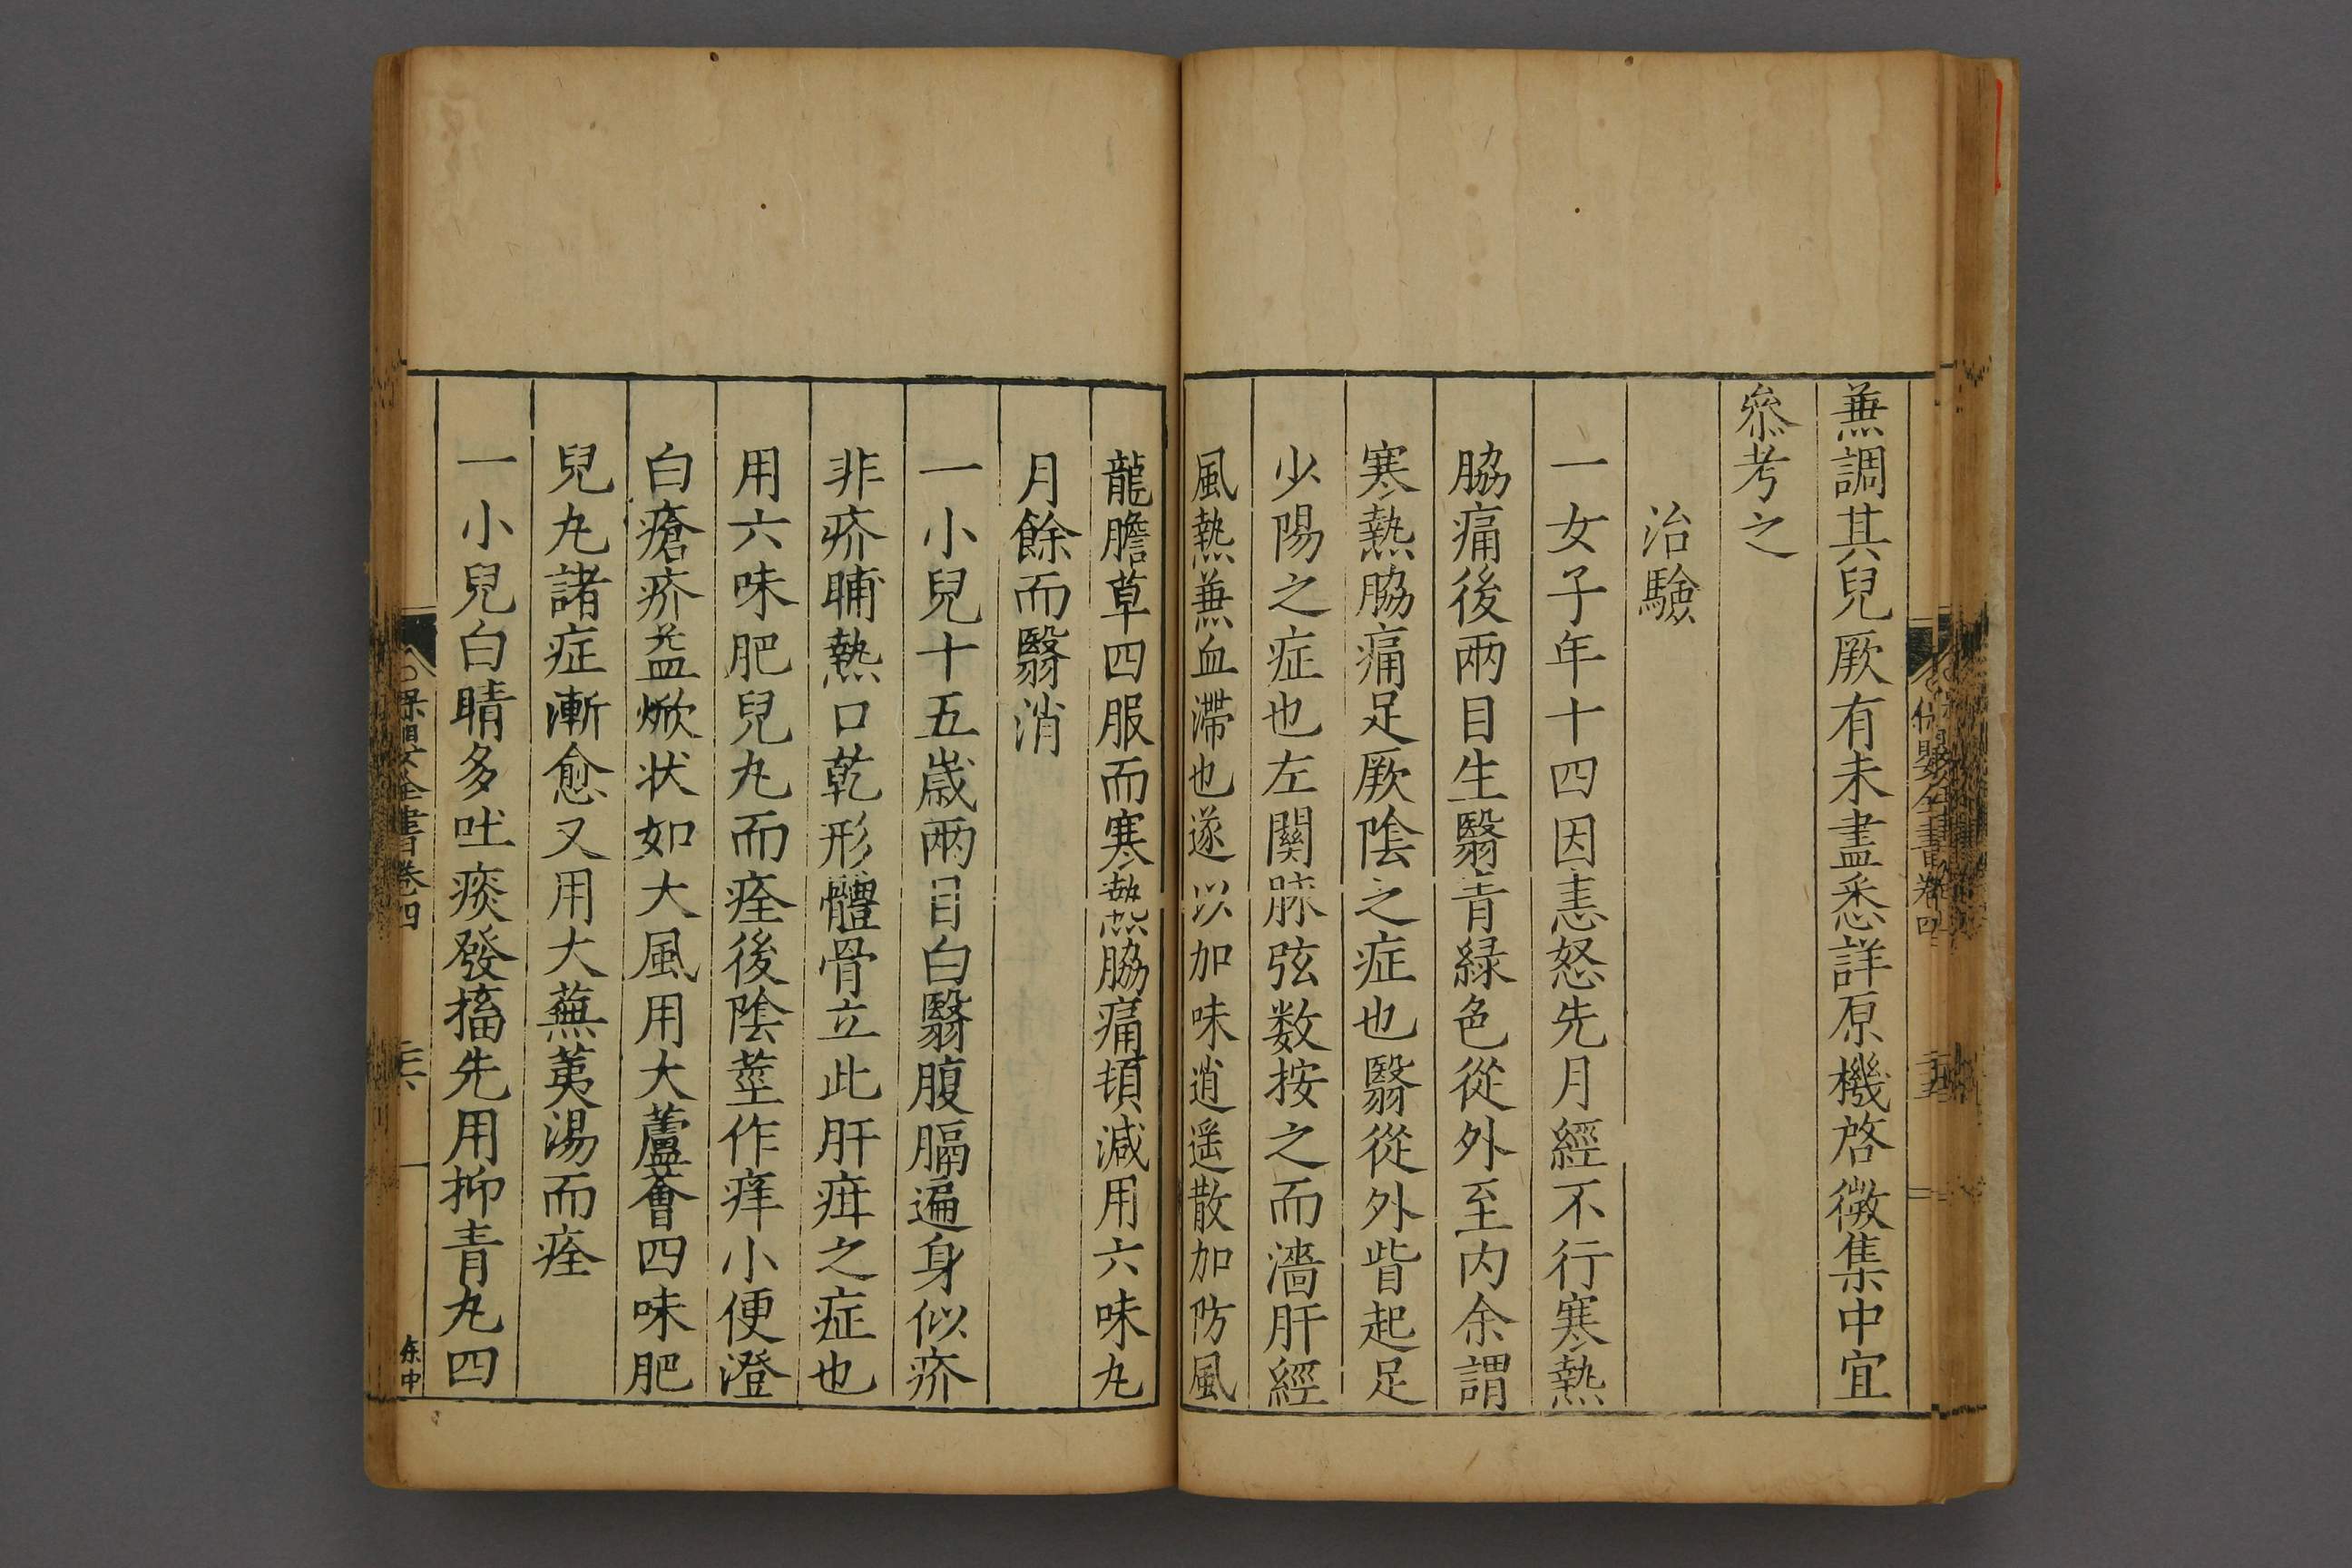 無調其兒厥有未盡悉詳原機啓微集中宜
叅考之
治驗
一女子年十四因恚怒先月經不行寒熱
脇痛後兩目生翳青緑色從外至内余謂
寒熱脇痛足厥陰之症也翳從外眥起足
少陽之症也左關脉弦数按之而濇肝經
風熱兼血滯也遂以加味逍遥散加防風
龍膽草四服而寒熱脇痛頓減用六味丸
月餘而翳消
一小兒十五歲兩目白翳腹膈遍身似疥
非疥晡熱口乾形體骨立此肝疳之症也
用六味肥兒丸而痊後陰莖作痒小便澄
白瘡疥益焮状如大風用大蘆薈四味肥
兒丸諸症漸愈又用大蕪荑湯而痊
一小兒白睛多吐痰發搐先用抑青丸四
保嬰全書卷四